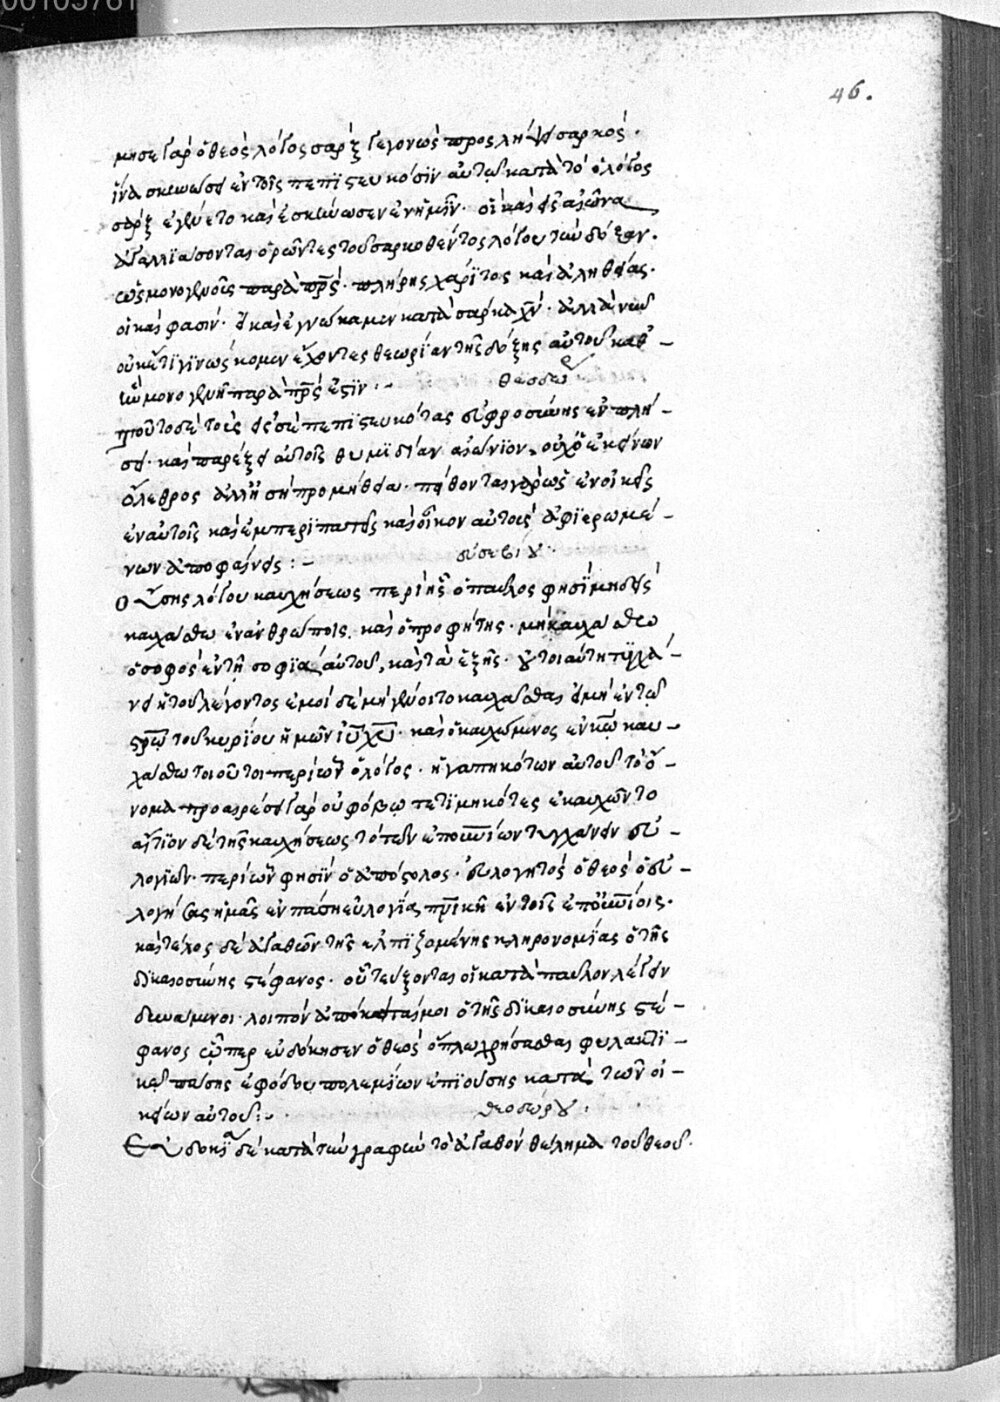 00105761
46.
μησε γὰρ ὁ θεὸς λόγος σαρξ γεγονὼς προσλήψει σαρκός.
ἵνα σκηνώσει ἐν τοῖς πεπιστευκόσιν αὐτῷ κατὰ τὸ ὁ λόγος
σὰρξ ἐγένετο καὶ ἐσκήνωσεν ἐν ἡμῖν. οἳ καὶ εἰς αἰῶνα
ἀγαλλιάσονται ὁρῶντες τοῦ σαρκοθέντος λόγου τὴν δόξαν.
ὡς μονογενοῦς παρὰ πρς. πλήρης χάριτος καὶ ἀληθείας.
οἳ καὶ φασιν. εἰ καὶ ἐγνώκαμεν κατὰ σάρκα χν. ἀλλὰ νῦν
οὐκέτι γινώσκομεν ἔχοντες θεωρίαν τῆς δόξης αὐτοῦ καθ
μονογενὴς παρὰ πρς ἐστιν:-
τοῦτο σὲ τοὺς εἰς σὲ πεπιστευκότας εὐφροσύνης ἐν πλή-
σει. καὶ παρέξει αὐτοῖς θυμηδίαν αἰώνιον. οὐχ ὁ ἐκείνων
ὄλεθρος ἀλλ' ἡ σὴ προμήθεια. πείθονται γὰρ ὡς ἐνοικεῖς
ἐν αὐτοῖς καὶ ἐμπεριπατεῖς καὶ οἶκον αὐτοὺς ἀφιερωμέ-
νων ἀποφαίνεις:-
εὐσεβίου.
Οὔσης λόγου καυχήσεως περὶ ἧς ὁ παῦλος φησὶ μηδεὶς
καυχάσθω ἐν ἀνθρώποις. καὶ ὁ προφήτης. μὴ καυχάσθω
ὁ σοφὸς ἐν τῇ σοφίᾳ αὐτοῦ, καὶ τὰ ἑξῆς. τοιαύτη τυγχά-
νει ἡ τοῦ λέγοντος ἐμοὶ δὲ μὴ γένοιτο καυχᾶσθαι εἰ μὴ ἐν τῷ
στρῷ τοῦ κυρίου ἡμῶν ιυ χυ. καὶ ὁ καυχώμενος ἐν κω καυ-
χάσθω τοιοῦτοι περὶ ὧν ὁ λόγος. ἠγαπηκότων αὐτοῦ τὸ ὄ-
νομα προαιρέσει γὰρ οὐ φόβῳ τετιμηκότες ἐκαυχῶντο
αἴτιον δὲ τῆς καυχήσεως τὸ τῶν ἐπουνίων τυγχάνειν εὐ-
λογιῶν. περὶ ὧν φησὶν ὁ ἀπόστολος. εὐλογητὸς ὁ θεὸς ὁ εὐ-
λογήσας ἡμᾶς ἐν πάσῃ εὐλογίᾳ πνικῇ ἐν τοῖς ἐπουνίοις.
καὶ τέλος δὲ ἀγαθῶν τῆς ἐλπιζομένης κληρονομίας ὁ τῆς
δικαιοσύνης στέφανος. οὗ τεύξονται οἱ κατὰ παῦλον λέγειν
δυνάμενοι. λοιπὸν ἀπόκειταί μοι ὁ τῆς δικαιοσύνης στέ-
φανος ᾧπερ εὐδόκησεν ὁ θεὸς ὅπλῳ χρήσασθαι φυλακτι-
κῷ πάσης ἐφόδου πολεμίων ἐπιούσης κατὰ τῶν οἰ-
κείων αὐτοῦ:-
θεοδώρου.
Εὐδοκία δὲ κατὰ τὴν γραφὴν τὸ ἀγαθὸν θέλημα τοῦ θεοῦ.